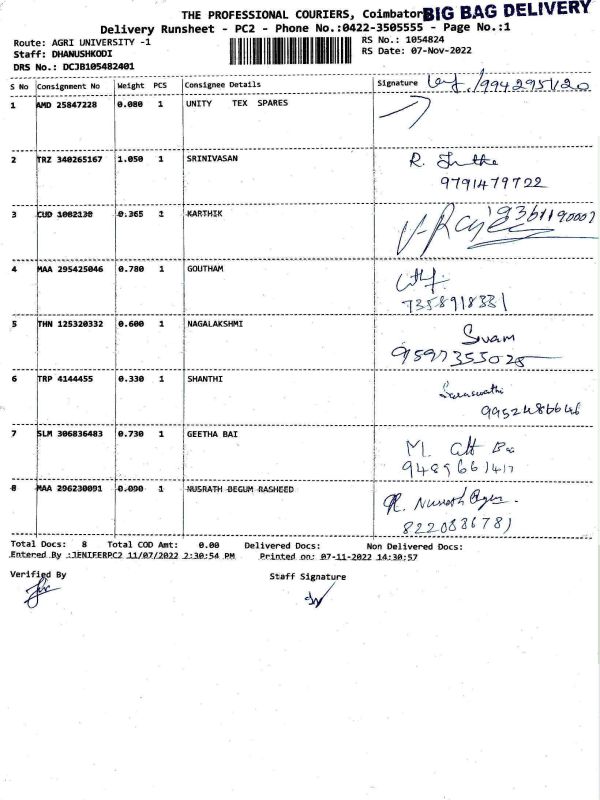 THE PROFESSIONAL COURIERS, Coimbator BIG BAG DELIVERY
Delivery Runsheet - PC2 - Phone No.:0422-3505555 - Page No.:1
Route: AGRI UNIVERSITY -1 RS No.: 1054824
Staff: DHANUSHKODI RS Date: 07-Nov-2022
DRS No.: DCJB105482401
S No Consignment No Weight PCS Consignee Details Signature /9942951120
1 AMD 25847228 0.080 1 UNITY TEX SPARES
2 TRZ 340265167 1.050 1 SRINIVASAN R.
9791479722
3 CUD 1082130 0.365 1 KARTHIK 9361190007
4 MAA 295425046 0.780 1 GOUTHAM
7358918331
5 THN 125320332 0.600 1 NAGALAKSHMI Suam
9597355025
6 TRP 4144455 0.330 1 SHANTHI Saraswathi
9952486646
7 SLM 306836483 0.730 1 GEETHA BAI M.
9489661417
8 MAA 296230091 0.090 1 NUSRATH BEGUM RASHEED R.
8220836781
Total Docs: 8 Total COD Amt: 0.00 Delivered Docs: Non Delivered Docs:
Entered By :JENIFERPC2 11/07/2022 2:30:54 PM Printed on: 07-11-2022 14:30:57
Verified By Staff Signature